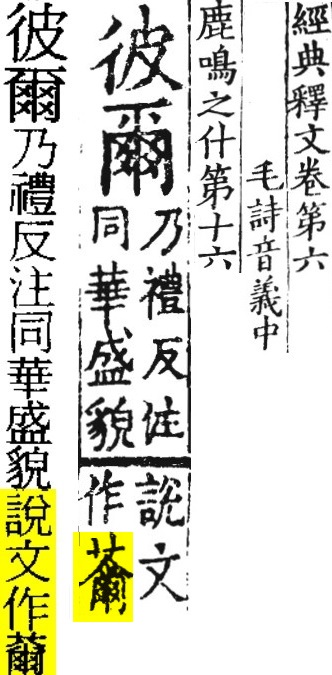 經典釋文卷第六
毛詩音義中
鹿鳴之什第十六
彼爾
乃禮反注
同華盛貌
說文
作薾
彼爾乃禮反注同華盛貌說文作薾